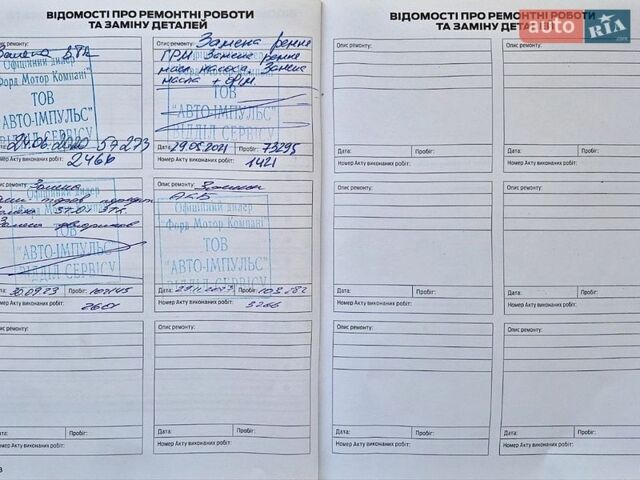 ВІДОМОСТІ ПРО РЕМОНТНІ РОБОТИ
ТА ЗАМІНУ ДЕТАЛЕЙ
Опис ремонту:
Офіційний дилер
Форд Мотор Компані
ТОВ
"АВТО-ІМПУЛЬС"
ВІДДІЛ СЕРВІСУ
Дата: 24.06.2020 57273
Номер Акту виконаних робіт:
2466
Опис ремонту: Замена ремне
ГРМ Замена ремне
масл насоса. Замена
масла + фільт.
ТОВ
"АВТО-ІМПУЛЬС"
ВІДДІЛ СЕРВІСУ
Дата: 29.05.2021 Пробіг: 73295
Номер Акту виконаних робіт:
1421
Опис ремонту:
Форд Мотор Компані
ТОВ
"АВТО-ІМПУЛЬС"
ВІДДІЛ СЕРВІСУ
30.09.23 Пробіг: 102145
Номер Акту виконаних робіт:
2601
Опис ремонту:
АКБ
Офіційний дилер
Форд Мотор Компані
ТОВ
"АВТО-ІМПУЛЬС"
ВІДДІЛ СЕРВІСУ
Дата: Пробіг:
Номер Акту виконаних робіт:
3266
Опис ремонту:
Дата: Пробіг:
Номер Акту виконаних робіт:
Опис ремонту:
Дата: Пробіг:
Номер Акту виконаних робіт:
ВІДОМОСТІ ПРО РЕМОНТНІ РОБОТИ
ТА ЗАМІНУ ДЕТАЛЕЙ
Опис ремонту:
Дата: Пробіг:
Номер Акту виконаних робіт:
Опис ремонту:
Дата: Пробіг:
Номер Акту виконаних робіт:
Опис ремонту:
Дата: Пробіг:
Номер Акту виконаних робіт:
Опис ремонту:
Дата:
Номер Акту виконаних робіт:
Опис ремонту:
Дата:
Номер Акту виконаних робіт:
Опис ремонту:
Дата:
Номер Акту виконаних робіт:
auto RIA.com